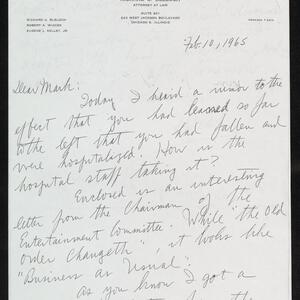 ATTORNEY AT LAW
SUITE 501
CHICAGO 6, ILLINOIS
RICHARD A. BLELOCH
ROBERT A. WINTER
EUGENE J. KELLEY, JR
Feb. 10, 1965
Dear Mark:
Today I heard a rumor to the
effect that you had leaned so far
to the left that you had fallen and
were hospitalized. How is the
hospital staff taking it?
Enclosed is an interesting
letter from the Chairman of the
Entertainment Committee. While "the Old
Order Changeth", it looks like
"Business as Usual".
as you know I got a
the